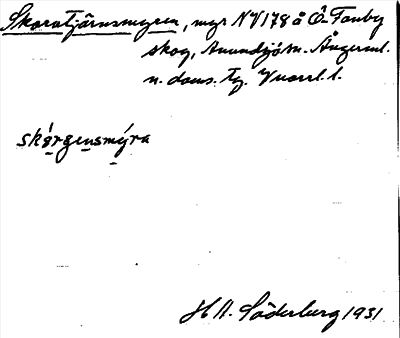 Skaratjärnsmyren, myr NV178 å Ö-Tanby
skog, Anundsjö sn. Ångerml.
n. doms. tg.
skárgensmýra
H. Söderberg 1931